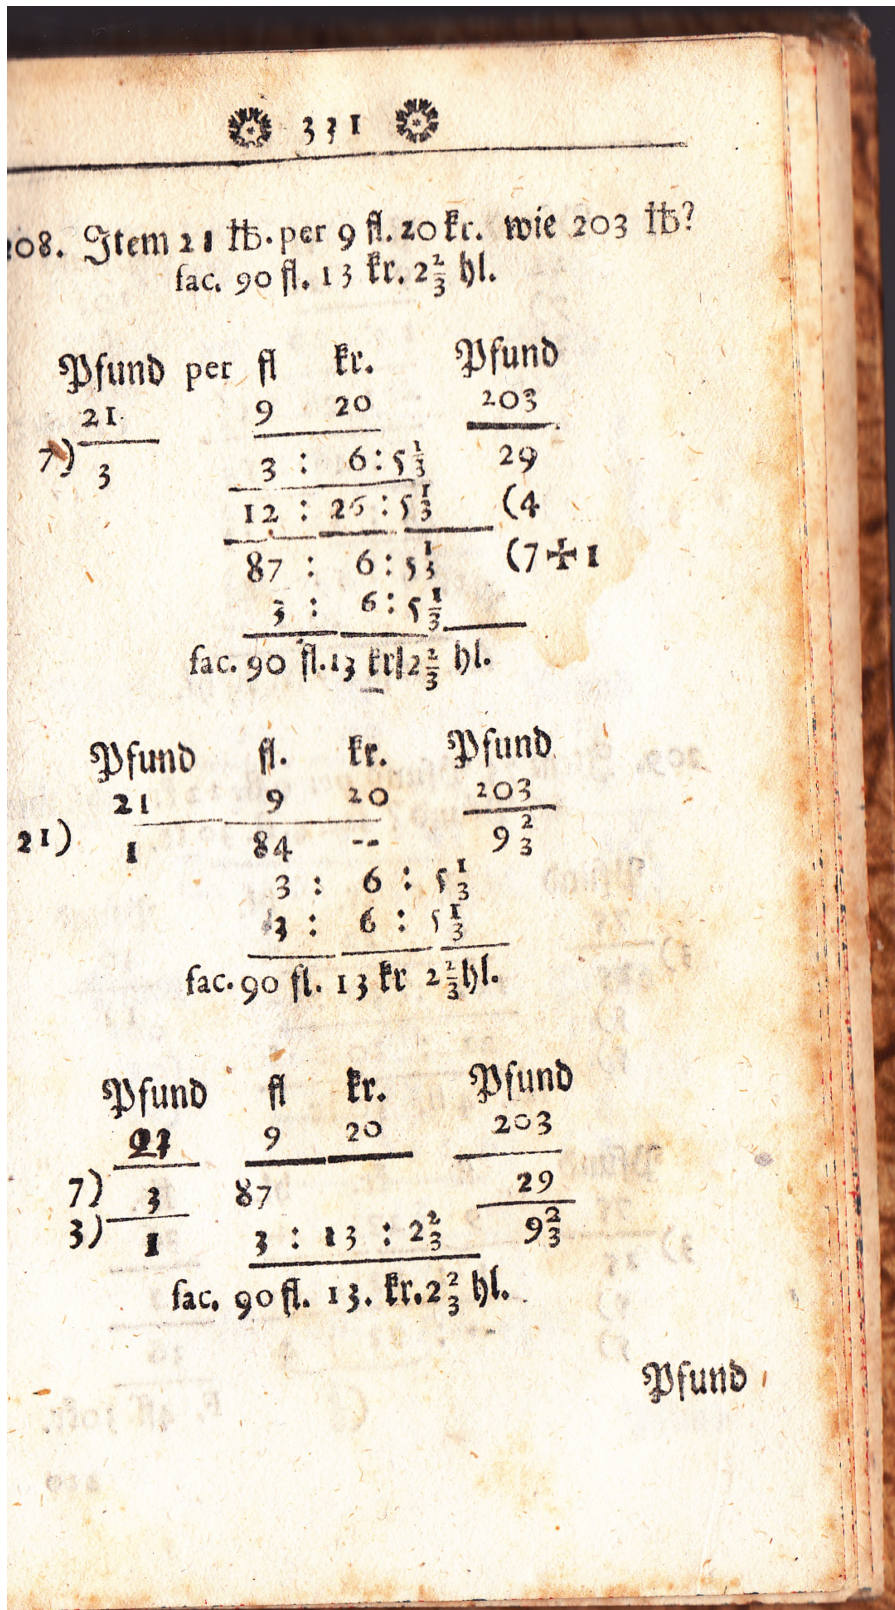 331
208. Item 21 ℔. per 9 fl. 20 kr. wie 203 ℔?
fac. 90 fl. 13 kr. 2 2/3 hl.
Pfund per fl kr. Pfund
21 9 20 203
7) 3 3 : 6 : 5 1/3 29
12 : 26 : 5 1/3 (4
87 : 6 : 5 1/3 (7 ✠ 1
3 : 6 : 5 1/3
fac. 90 fl. 13 kr 2 2/3 hl.
Pfund fl. kr. Pfund
21 9 20 203
21) 1 84 -- 9 2/3
3 : 6 : 5 1/3
3 : 6 : 5 1/3
fac. 90 fl. 13 kr 2 2/3 hl.
Pfund fl kr. Pfund
9 20 203
7) 3 87 29
3) 1 3 : 13 : 2 2/3 9 2/3
fac. 90 fl. 13. kr. 2 2/3 hl.
Pfund